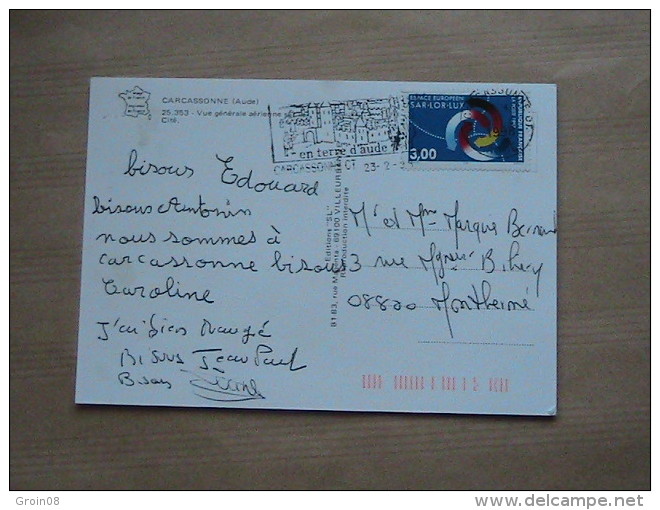 CARCASSONNE (Aude)
25.353 - Vue générale aérienne
Cité.
en terre d'aude
CARCASSONNE CT 23-2-
ESPACE EUROPÉEN
SAR-LOR-LUX
3,00
RÉPUBLIQUE FRANÇAISE
bisous Edouard
bisous Antonin
nous sommes à
carcassonne bisous
Caroline
J'ai bien Mangé
Bisous Jean Paul
Bisous
Editions "SL"
81-83, rue Magenta - 69100 VILLEURBANNE
Reproduction interdite
Mr et Mme Marquis Bernard
3 rue Mgneur
08800 Monthermé
Groin08
delcampe.net